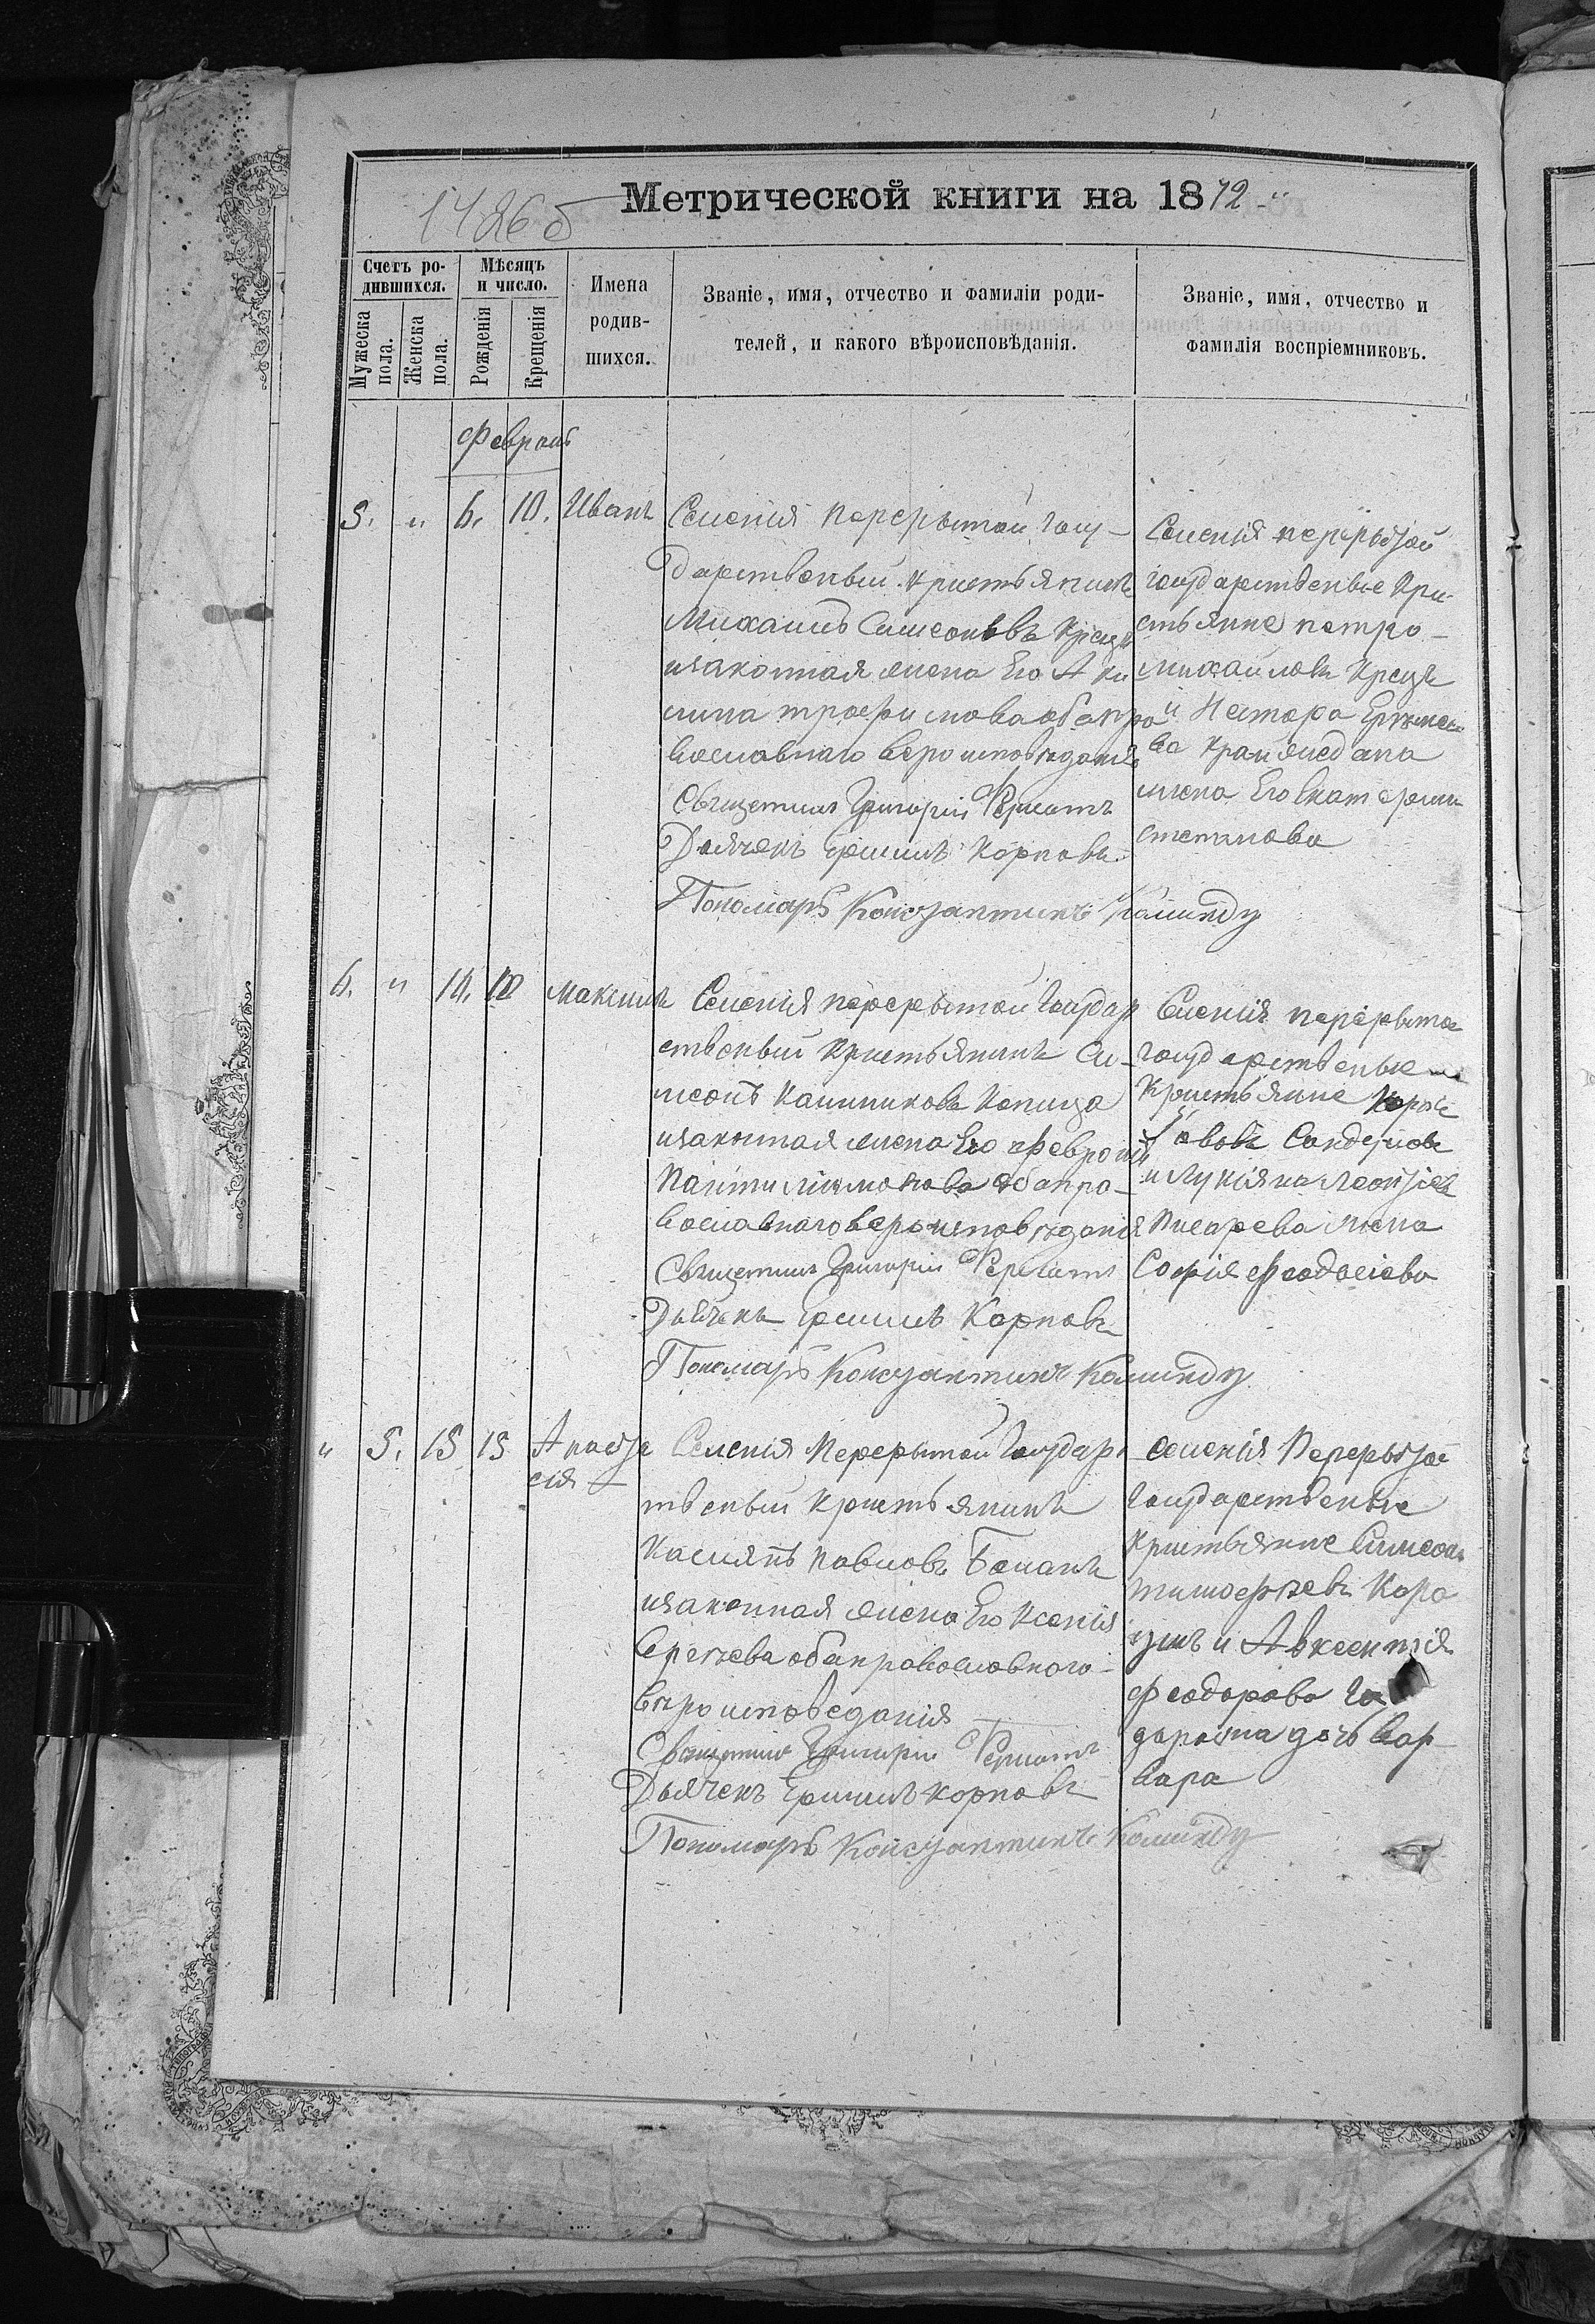 1426 б
Метрической книги на 1872
Счетъ ро-
дившихся.
Мужеска
пола.
Женска
пола.
Мѣсяцъ
и число.
Рожденія
Крещенія
Имена
родив-
шихся.
Званіе, имя, отчество и фамиліи роди-
телей, и какого вѣроисповѣданія.
Званіе, имя, отчество и
фамилія воспріемниковъ.
Февраль
5. " 6. 10. Иванъ
Селенія Перерытой госу-
дарственый кристьянинъ
Михаилъ Симеоновъ Крецу
изаконная жена Его Аки
лина трофимова обапра
вославнаго вероисповѣданія
Священикъ Григорій
Дьячекъ Еримия Карповъ
Пономаръ Констянтинъ
Селенія перерытой
государственые кри-
стьянне петро
михайловъ Крецу
и Нестора
ва
жена Его Екатерина
степанова
6. " 14. Максимъ
Селенія перерытой Государ
ственый кристьянинъ Си-
меонъ Калиниковъ
изаконная жена Его Феврония
Пантилимонова обапра-
вославнаго вероисповѣданія
Священикъ Григорій
Дьячекъ Еримия Карповъ
Пономаръ Констянтинъ
Селенія перерытой
государственые
кристьянне
Сандулова
и Лукіяна Леонтіев
Писарева жена
Софія Феодосіева
" 5. 15 15 Анаста
сія
Селенія Перерытой Государс
твеный кристьянинъ
Касиянъ Павловъ Баланъ
изаконная жена Его Ксенія
Сергѣева обаправославного
вѣроисповеданія
Священикъ Григорій
Дьячекъ Еримия Карповъ
Пономаръ Констянтинъ
селенія Перерытой
государственые
кристьянне Симеонъ
тимофѣевъ Кара
и Авксентія
Феодорова
дочь Вар
вара